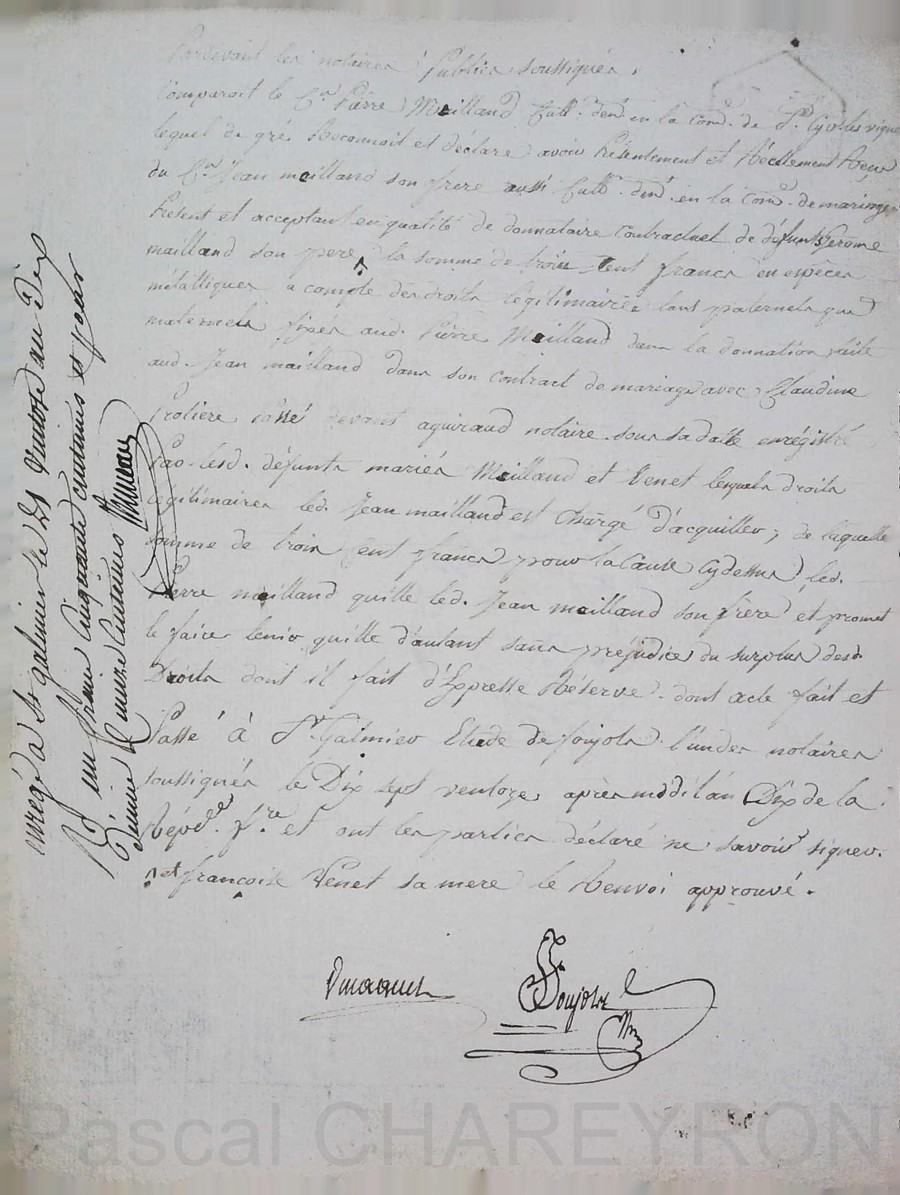 Pardevant les notaires Publics soussignés,
Comparoit le C.en Pierre Mailland Cult. dem.t en la Com.e de S.t Cyr les vignes
lequel de gré Reconnoit et déclare avoir Présentement et Réellement Reçu
du C.en Jean mailland son frere aussi Cult. dem.t en la Com.e de maringes
Présent et acceptant en qualité de donnataire Contractuel de défunts Jerome
mailland son pere ^ la somme de trois Cent francs en espèces
métalliques a compte des droits légitimaires tant paternels que
maternels fixés aud. Pierre Mailland dans la donnation faite
aud. Jean mailland dans son contract de mariage avec Claudine
Proliere passé devant aguiraud notaire sous sa date enrégistré
Par lesd. défunts mariés Mailland et Venet lesquels droits
légitimaires led. Jean mailland est Chargé d'acquitter, de laquelle
somme de trois Cent francs pour la Cause Cydessus led.
Pierre mailland quitte led. Jean mailland son frère et promet
le faire tenir quitte d'autant sans préjudice du surplus desd.
Droits dont il fait d'Expresse Réserve. dont acte fait et
Passé à S.t Galmier Etude de Soujols l'un des notaires
soussignés le Dix sept ventoze après midi l'an Dix de la
Répub.e f.se et ont les parties déclaré ne savoir signer.
^ et françoise Venet sa mere le Renvoi approuvé.
Soujols
enregé a St galmier le 25 Ventose an Dix
R un franc Cinquante centimes et pour
Dixime quinze Centimes
Pascal CHAREYRON